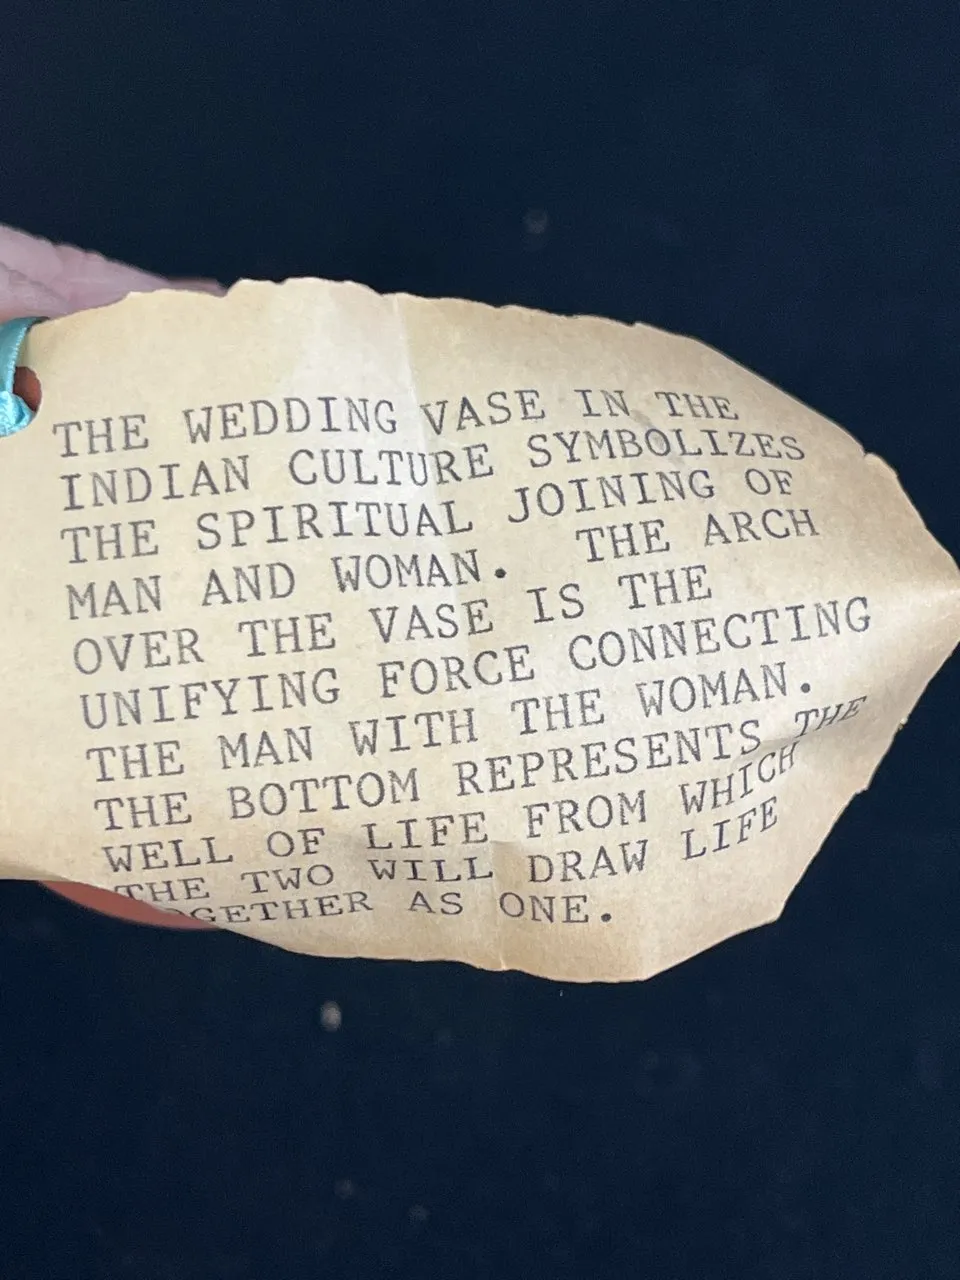 THE WEDDING VASE IN THE
INDIAN CULTURE SYMBOLIZES
THE SPIRITUAL JOINING OF
MAN AND WOMAN. THE ARCH
OVER THE VASE IS THE
UNIFYING FORCE CONNECTING
THE MAN WITH THE WOMAN.
THE BOTTOM REPRESENTS THE
WELL OF LIFE FROM WHICH
THE TWO WILL DRAW LIFE
TOGETHER AS ONE.